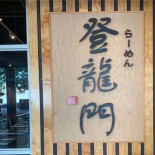 らーめん
登龍門